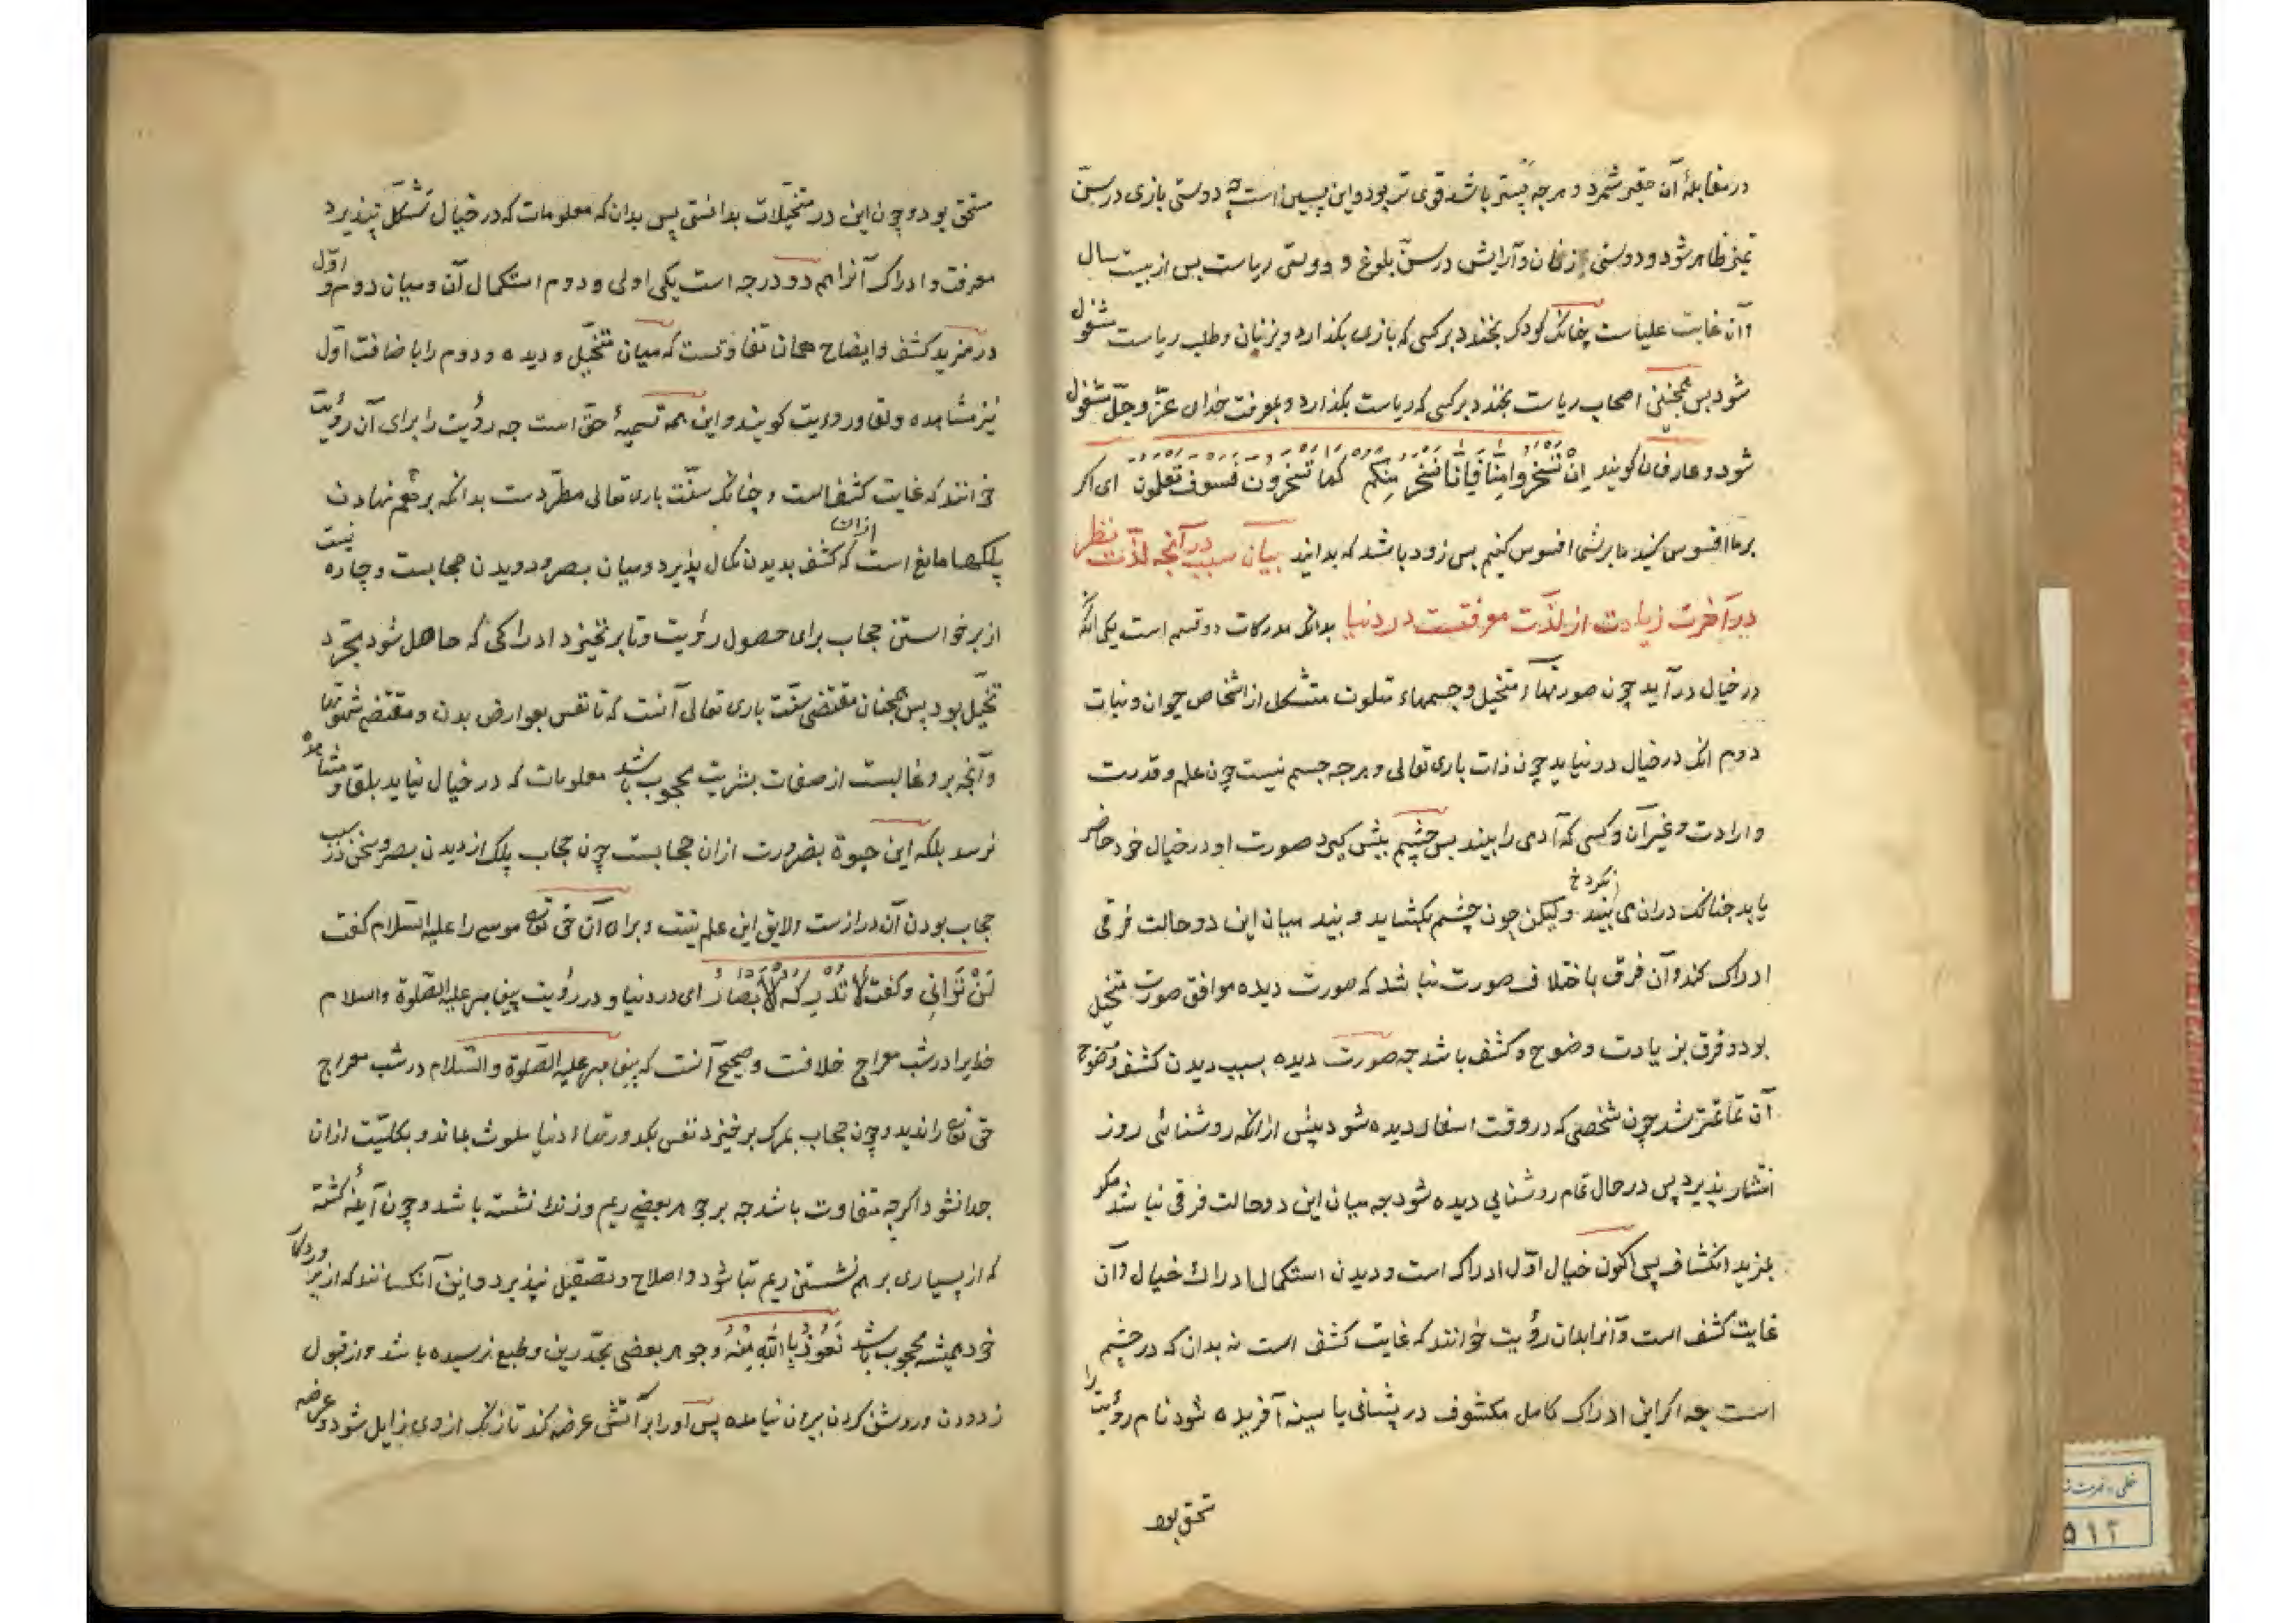 در مقابلهٔ آن حقیر شمرد و هرچه پستر باشد قوی تر بود و این پسین است چه دوستی بازی در سنّ
تمیز ظاهر شود و دوستی زنان و آرایش در سنّ بلوغ و دوستی ریاست پس از بیست سال
و آن غایت علیاست چنانک کودک بخندد بر کسی که بازی بگذارد و بزنان و طلب ریاست مشغول
شود پس همچنین اصحاب ریاست بخندد بر کسی که ریاست بگذارد و بمعرفت خدای عزّ و جلّ مشغول
شود و عارفان گویند اِنْ تَسْخَرُوا مِنّا فَاِنّا نَسْخَرُ مِنْکُم کَما تَسْخَرُونَ فَسَوفَ تَعلَمُونَ ای اگر
بر ما افسوس کنید ما بر شما افسوس کنیم پس زود باشد که بدانید بیان سبب در آنچه لذّت نظر
در آخرت زیادت از لذّت معرفتست در دنیا بدانک مدرکات دو قسم است یکی آنکه
در خیال درآید چون صورتهاء متخیل و جسمهاء متلون متشکل از اشخاص حیوان و نبات
دوم آنک در خیال درنیاید چون ذات باری تعالی و هرچه جسم نیست چون علم و قدرت
و ارادت و غیر آن و کسی که آدمی را بیند پس چشم پیش گیرد صورت او در خیال خود حاضر
یابد چنانک در آن می بیند نگرد خ ولیکن چون چشم بگشاید و بیند میان این دو حالت فرقی
ادراک کند و آن فرق باختلاف صورت نباشد که صورت دیده موافق صورت متخیل
بود و فرق بزیادت وضوح و کشف باشد چه صورت دیده بسبب دیدن کشف و وضوح
آن تمامتر شد چون شخصی که در وقت اسفار دیده شود پیش از آنکه روشنائی روز
انتشار پذیرد پس در حال تمام روشنایی دیده شود چه میان این دو حالت فرقی نباشد مگر
بمزید انکشاف پس اکنون خیال اوّل ادراک است و دیدن استکمال ادراک خیال و آن
غایت کشف است و آنرا بدان رؤیت خوانند که غایت کشف است نه بدان که در چشم
است چه اگر این ادراک کامل مکشوف در پیشانی یا سینه آفریده شود نام رؤیت را
مستحق بود
مستحق بود و چون این در متخیّلات بدانستی پس بدان که معلومات که در خیال تشکّل نپذیرد
معرفت و ادراک آنرا هم دو درجه است یکی اولی و دوم استکمال آن و میان دوم و اوّل
در مزید کشف و ایضاح همان تفاوتست که میان متخیّل و دیده و دوم را باضافت اوّل
نیز مشاهده و لقا و رویت گویند و این همه تسمیهٔ حقّ است چه رؤیت را برای آن رؤیت
خوانند که غایت کشف است و چنانک سنّت باری تعالی مطّردست بدانکه بر هم نهادن
پلکها مانع است از آن که کشف بدیدن کمال پذیرد و میان بصر و دیدن حجابست و چاره نیست
از برخواستن حجاب برای حصول رؤیت و تا برنخیزد ادراکی که حاصل شود مجرّد
تخیّل بود پس همچنان مقتضی سنّت باری تعالی آنست که تا نفس بعوارض بدن و مقتضی شهوتها
و آنچه برو غالبست از صفات بشریت محجوب باشد معلومات که در خیال نیاید بلقا و مشاهده
نرسد بلکه این حیوة بضرورت ازان حجابست چون حجاب پلک از دیدن بصر و سخن در سبب
حجاب بودن آن درازست و لایق این علم نیست و برای آن حق تع موسی را علیه السّلام گفت
لَنْ تَرانِی و گفت لا تُدْرِکُهُ الْاَبْصارُ ای در دنیا و در رؤیت پیغامبر علیه الصّلوة والسلام
خدایرا در شب معراج خلافت و صحیح آنست که پیغامبر علیه الصّلوة والسّلام در شب معراج
حق تع را ندید و چون حجاب بمرگ برخیزد نفس بکدورتهاء دنیا ملوث بماند و بکلیّت ازان
جدا نشود اگرچه متفاوت باشد چه بر جوهر بعضی ریم و زنگ نشسته باشد و چون آینهٔ گشته
که از بسیاری بر هم نشستن ریم تباه شود و اصلاح و تصقیل نپذیرد و این آنکسانند که از پروردگار
خود همیشه محجوب باشد نَعُوذُ بِاللّهِ مِنْهُ و جوهر بعضی بحدّ رین و طبع نرسیده باشد و از قبول
زدودن و روشن کردن بیرون نیامده پس او را بر آتش عرضه کند تا زنگ از وی زایل شود و عرضه